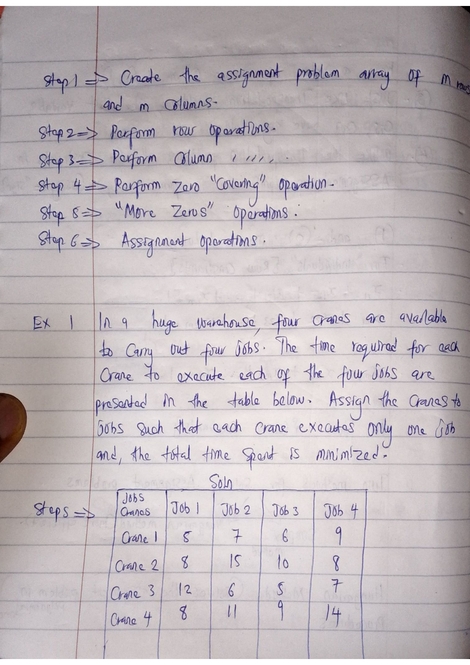 Step 1 => Create the assignment problem array of m rows
and m Columns.
Step 2 => Perform row operations.
Step 3 => Perform Column " " " .
Step 4 => Perform Zero "Covering" operation.
Step 5 => "More Zeros" Operations.
Step 6 => Assignment operations.
Ex 1 In a huge warehouse, four cranes are available
to Carry out four jobs. The time required for each
Crane to execute each of the four jobs are
presented in the table below. Assign the Cranes to
jobs such that each Crane executes only one job
and, the total time Spent is minimized.
Soln
Steps => Jobs
Cranes Job 1 Job 2 Job 3 Job 4
Crane 1 5 7 6 9
Crane 2 8 15 10 8
Crane 3 12 6 5 7
Crane 4 8 11 9 14